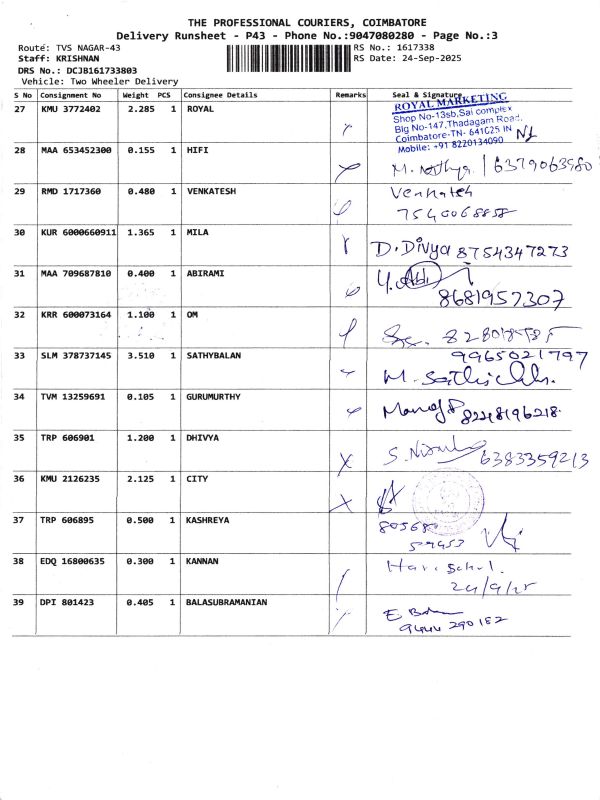 THE PROFESSIONAL COURIERS, COIMBATORE
Delivery Runsheet - P43 - Phone No.:9047080280 - Page No.:3
Route: TVS NAGAR-43
RS No.: 1617338
Staff: KRISHNAN
RS Date: 24-Sep-2025
DRS No.: DCJB161733803
Vehicle: Two Wheeler Delivery
S No Consignment No Weight PCS Consignee Details Remarks Seal & Signature
27 KMU 3772402 2.285 1 ROYAL
ROYAL MARKETING
Shop No-13sb,Sai complex
Blg No-147,Thadagam Road,
Coimbatore-TN- 641025 IN
Mobile: +91 8220134090
28 MAA 653452300 0.155 1 HIFI 6379063980
29 RMD 1717360 0.480 1 VENKATESH Venkatesh
7540068858
30 KUR 6000660911 1.365 1 MILA D. Divya 8754347273
31 MAA 709687810 0.400 1 ABIRAMI
8681957307
32 KRR 600073164 1.100 1 OM
33 SLM 378737145 3.510 1 SATHYBALAN 9965021797
34 TVM 13259691 0.105 1 GURUMURTHY Manoj 8248196218.
35 TRP 606901 1.200 1 DHIVYA 6383359213
36 KMU 2126235 2.125 1 CITY
37 TRP 606895 0.500 1 KASHREYA 805680
59953
38 EDQ 16800635 0.300 1 KANNAN
24/9/25
39 DPI 801423 0.405 1 BALASUBRAMANIAN
9444 290182